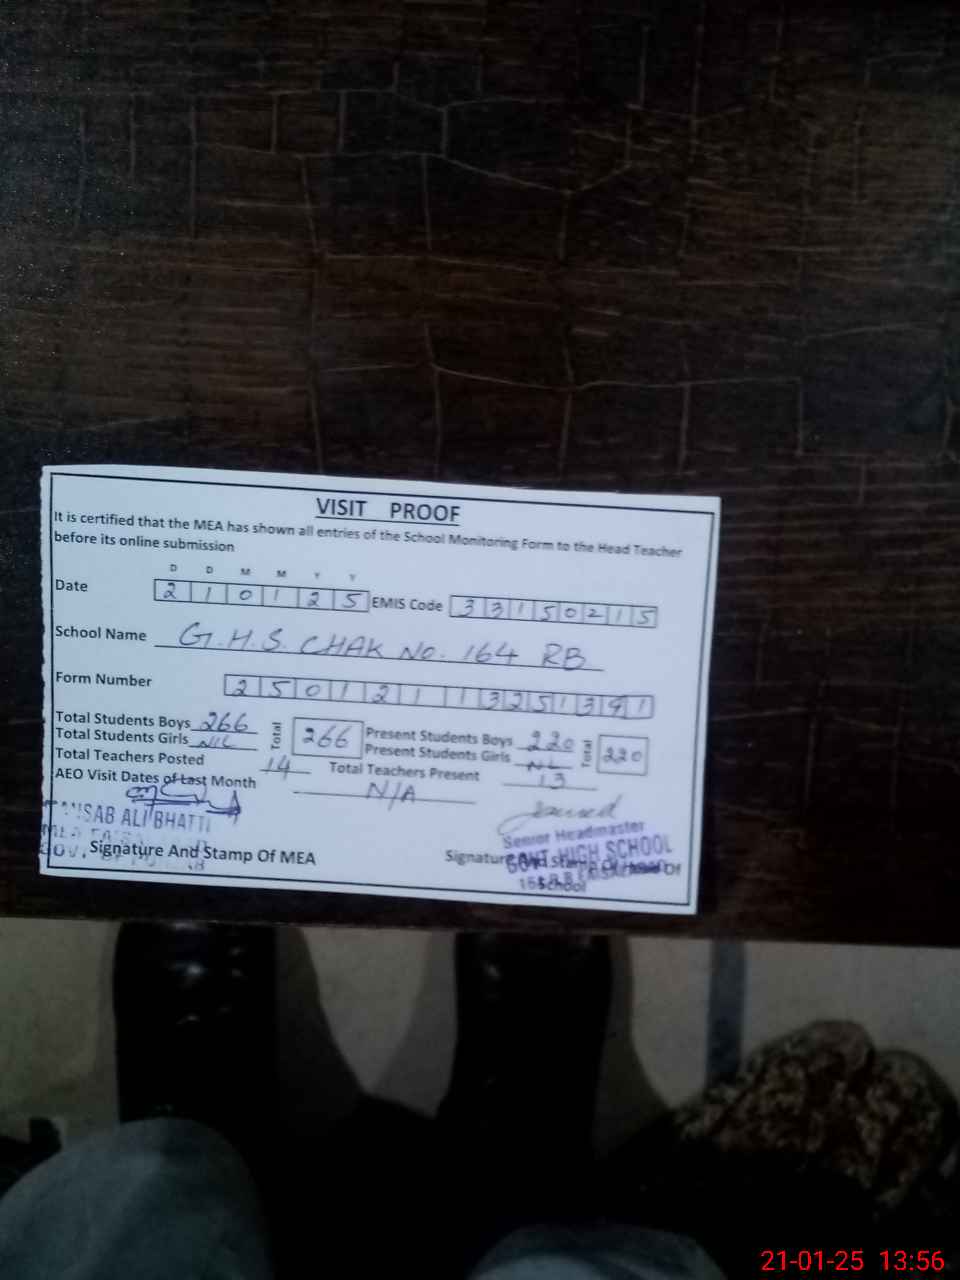 VISIT PROOF
It is certified that the MEA has shown all entries of the School Monitoring Form to the Head Teacher
before its online submission
D D M M Y Y
Date 2 1 0 1 2 5 EMIS Code 3 3 1 5 0 2 1 5
School Name G.H.S. CHAK No. 164 RB
Form Number 2 5 0 1 2 1 1 3 2 5 1 3 9 1
Total Students Boys 266 Total 266 Present Students Boys 220 Total 220
Total Students Girls NIL Present Students Girls NIL
Total Teachers Posted 14 Total Teachers Present 13
AEO Visit Dates of Last Month N/A
SAB ALI BHATTI
Senior Headmaster
GOVT. HIGH SCHOOL
Signature And Stamp Of MEA
Signature And Stamp Of Head Of
School
21-01-25 13:56